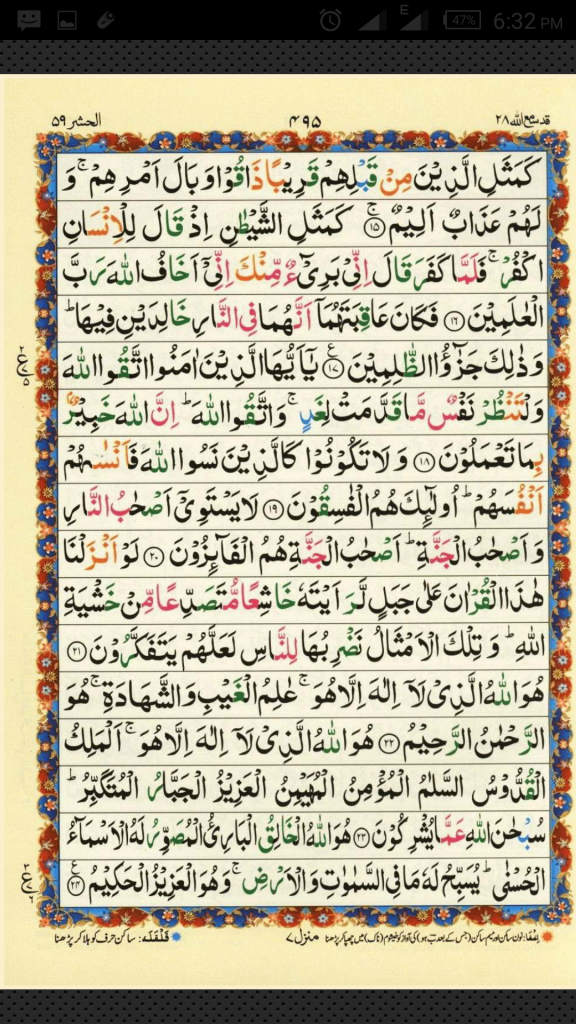 47%
6:32 PM
قد سمع الله ٢٨
٤٩٥
الحشر ٥٩
كَمَثَلِ الَّذِيْنَ مِنْ قَبْلِهِمْ قَرِيْبًا ذَاقُوْا وَبَالَ اَمْرِهِمْ ۚ وَ
لَهُمْ عَذَابٌ اَلِيْمٌ ۚ ١٥ كَمَثَلِ الشَّيْطٰنِ اِذْ قَالَ لِلْاِنْسَانِ
اكْفُرْ ۚ فَلَمَّا كَفَرَ قَالَ اِنِّيْ بَرِيْٓءٌ مِّنْكَ اِنِّيْٓ اَخَافُ اللّٰهَ رَبَّ
الْعٰلَمِيْنَ ١٦ فَكَانَ عَاقِبَتَهُمَآ اَنَّهُمَا فِي النَّارِ خَالِدَيْنِ فِيْهَا ؕ
وَ ذٰلِكَ جَزٰٓؤُا الظّٰلِمِيْنَ ١٧ ع يٰٓاَيُّهَا الَّذِيْنَ اٰمَنُوا اتَّقُوا اللّٰهَ
وَلْتَنْظُرْ نَفْسٌ مَّا قَدَّمَتْ لِغَدٍ ۚ وَاتَّقُوا اللّٰهَ ؕ اِنَّ اللّٰهَ خَبِيْرٌۢ
بِمَا تَعْمَلُوْنَ ١٨ وَلَا تَكُوْنُوْا كَالَّذِيْنَ نَسُوا اللّٰهَ فَاَنْسٰىهُمْ
اَنْفُسَهُمْ ؕ اُولٰٓئِكَ هُمُ الْفٰسِقُوْنَ ١٩ لَا يَسْتَوِيْٓ اَصْحٰبُ النَّارِ
وَ اَصْحٰبُ الْجَنَّةِ ؕ اَصْحٰبُ الْجَنَّةِ هُمُ الْفَآئِزُوْنَ ٢٠ لَوْ اَنْزَلْنَا
هٰذَا الْقُرْاٰنَ عَلٰى جَبَلٍ لَّرَاَيْتَهٗ خَاشِعًا مُّتَصَدِّعًا مِّنْ خَشْيَةِ
اللّٰهِ ؕ وَ تِلْكَ الْاَمْثَالُ نَضْرِبُهَا لِلنَّاسِ لَعَلَّهُمْ يَتَفَكَّرُوْنَ ٢١
هُوَ اللّٰهُ الَّذِيْ لَآ اِلٰهَ اِلَّا هُوَ ۚ عٰلِمُ الْغَيْبِ وَالشَّهَادَةِ ۚ هُوَ
الرَّحْمٰنُ الرَّحِيْمُ ٢٢ هُوَ اللّٰهُ الَّذِيْ لَآ اِلٰهَ اِلَّا هُوَ ۚ اَلْمَلِكُ
الْقُدُّوْسُ السَّلٰمُ الْمُؤْمِنُ الْمُهَيْمِنُ الْعَزِيْزُ الْجَبَّارُ الْمُتَكَبِّرُ ؕ
سُبْحٰنَ اللّٰهِ عَمَّا يُشْرِكُوْنَ ٢٣ هُوَ اللّٰهُ الْخَالِقُ الْبَارِئُ الْمُصَوِّرُ لَهُ الْاَسْمَآءُ
الْحُسْنٰى ؕ يُسَبِّحُ لَهٗ مَا فِي السَّمٰوٰتِ وَالْاَرْضِ ۚ وَهُوَ الْعَزِيْزُ الْحَكِيْمُ ٢٤ ع
اخفا: نون ساکن اور میم ساکن (جس کے بعد ب ہو) کی آواز کو خیشوم (ناک) میں چھپا کر پڑھنا منزل ٧ قلقلہ: ساکن حرف کو ہلا کر پڑھنا